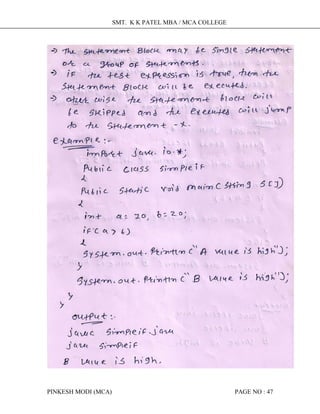 SMT. K K PATEL MBA / MCA COLLEGE
-> The Statement Block may be Single Statement
or a group of Statements.
-> if the test expression is true, then the
Statement Block will be executed.
-> other wise the statement block will
be skipped and the executed will jump
to the Statement -x.
example :-
import java.io.*;
Public class simpleif
{
Public static void main(String s[])
{
int a=20, b=20;
if(a>b)
{
System.out.println("A value is high");
}
System.out.println("B value is high");
}
}
output :-
javac simpleif.java
java simpleif
B value is high.
PINKESH MODI (MCA) PAGE NO : 47